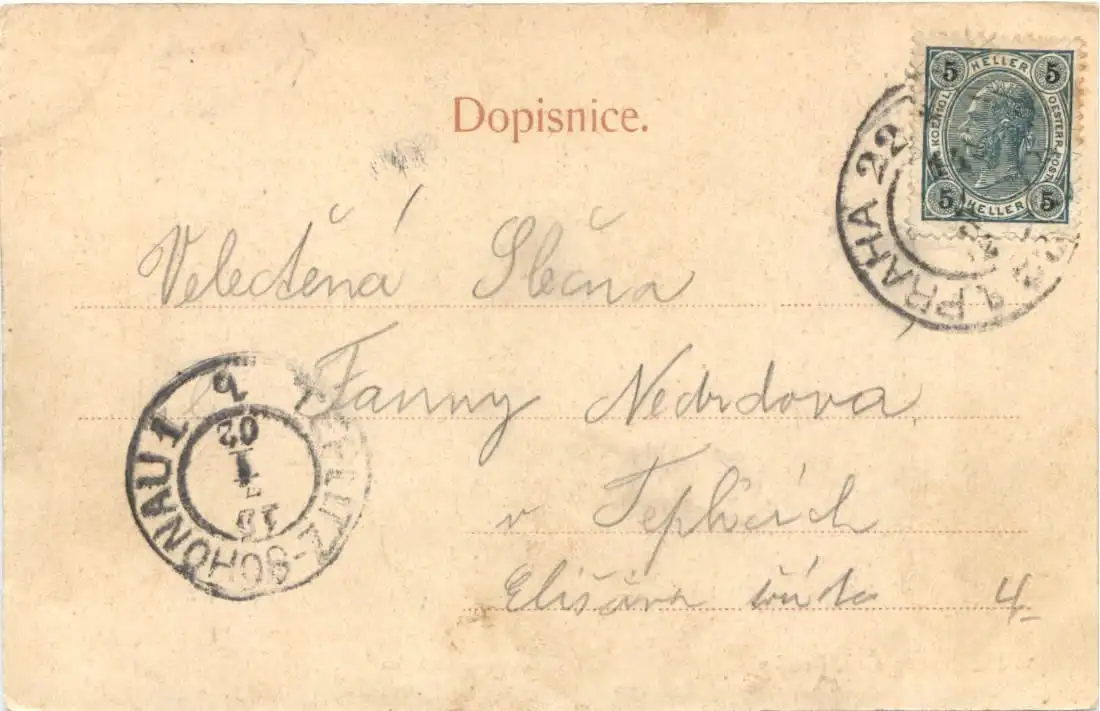 Dopisnice.
5 HELLER 5
OESTERR. POST.
5 HELLER 5
PRAHA 22
Velectěná Slečna
Fanny Nedvdova
v Teplicích
4
TEPLITZ-SCHÖNAU 1
02